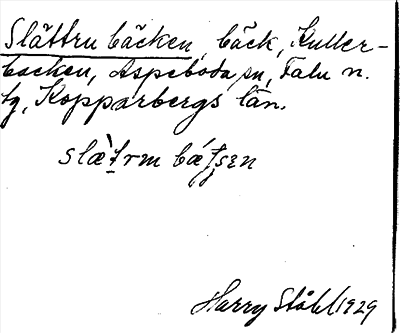 Slättru bäcken, bäck, Kuller-
backen, Aspeboda sn, Falu n.
tg, Kopparbergs län.
Harry Ståhl 1929